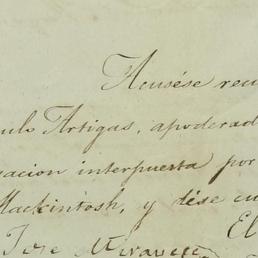 Acusése reci
ulo Artigas, apoderad
acion interpuesta por
Mackintosh, y dése cu
El